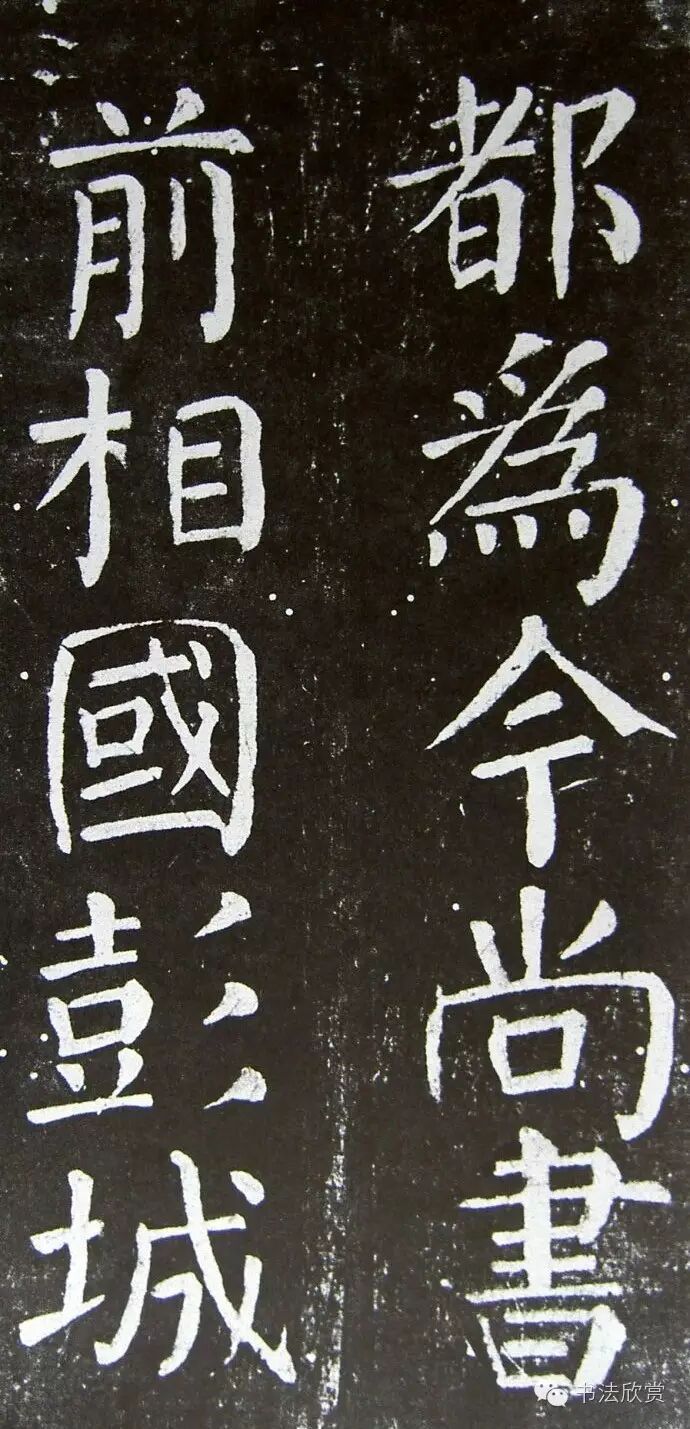 都為今尚書
前相國彭城
书法欣赏